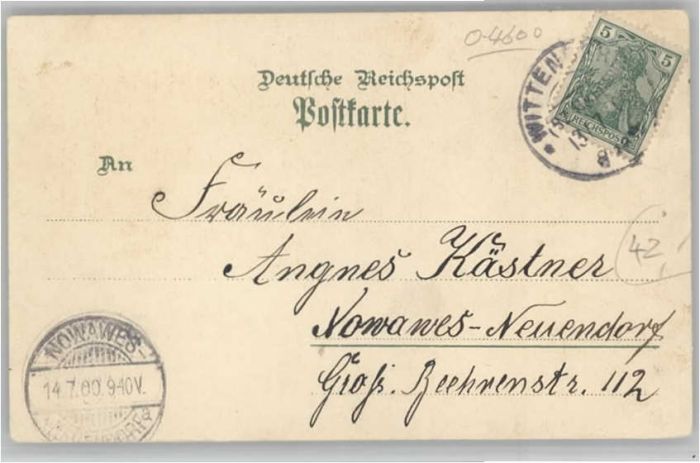 0-4600
5 5
REICHSPOST
* WITTEN
13
Deutsche Reichspost
Postkarte.
An
Fräulein
Angnes Kästner
42
Nowawes-Neuendorf
Groß. Beehrenstr. 112
NOWAWES-
14.7.00.9-10V.